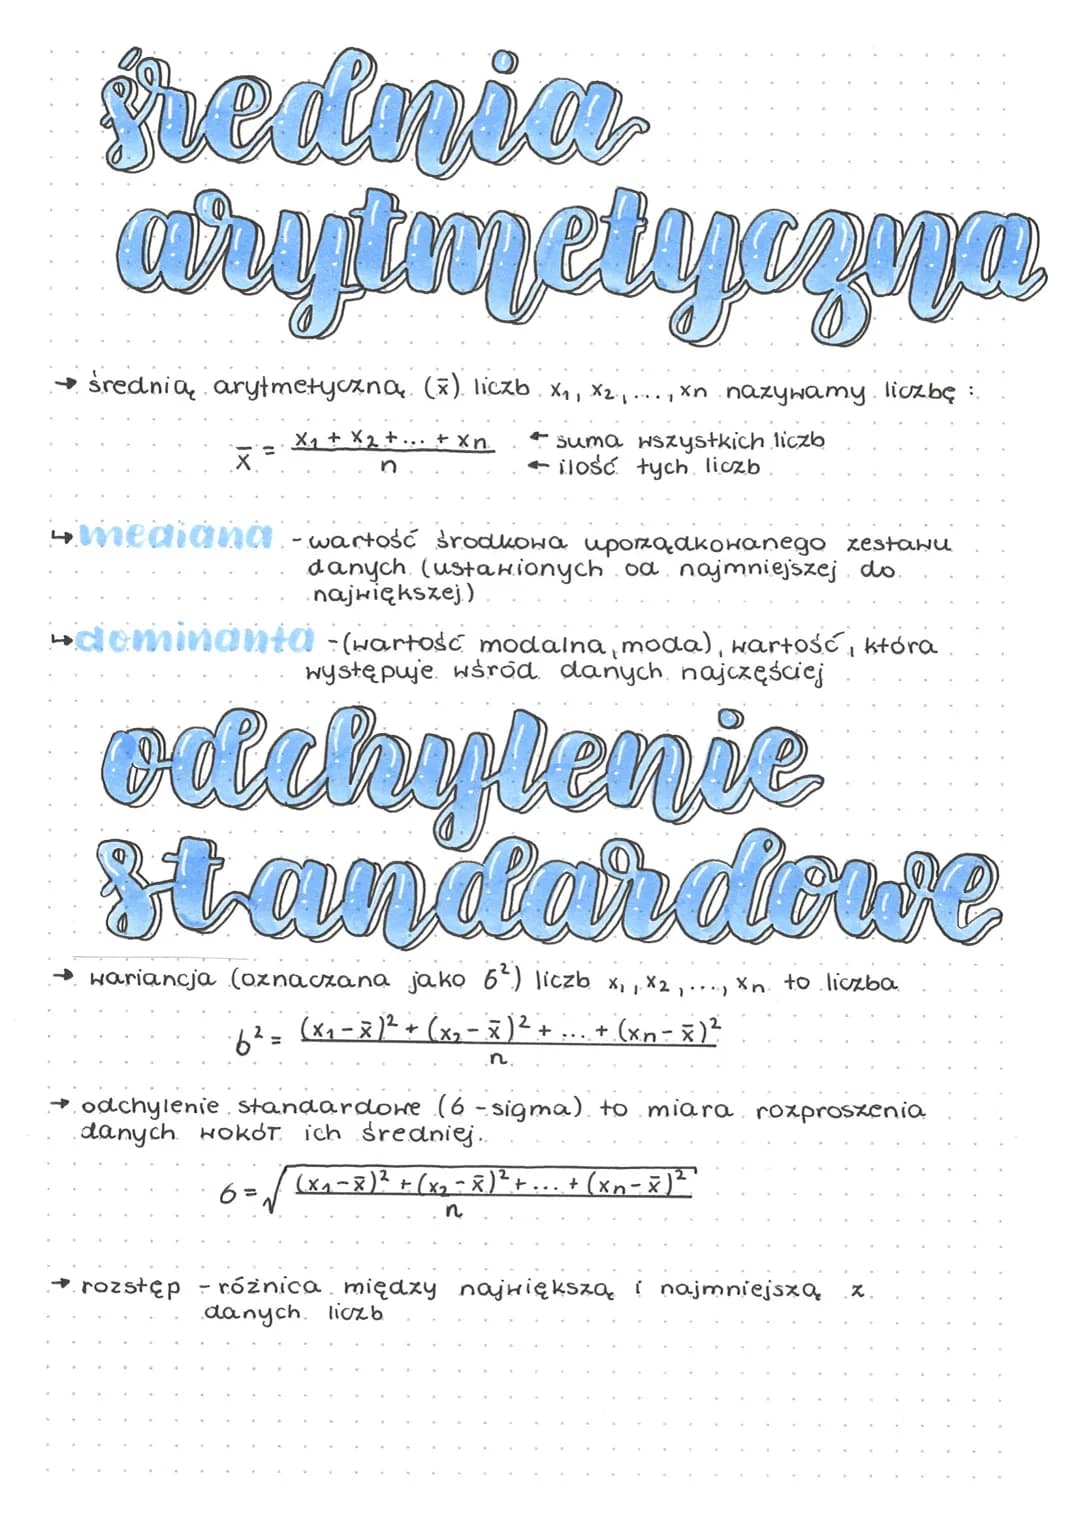 średnia
arytmetyczna
→ średnią arytmetyczną (x̄) liczb x₁, x₂, ..., xn nazywamy liczbę :
x̄ = (x₁ + x₂ + ... + xn) / n ← suma wszystkich liczb
← ilość tych liczb
↳ mediana - wartość środkowa uporządkowanego zestawu
danych (ustawionych od najmniejszej do
największej)
↳ dominanta - (wartość modalna, moda), wartość, która
występuje wśród danych najczęściej
odchylenie
standardowe
→ wariancja (oznaczana jako 6²) liczb x₁, x₂, ..., xn to liczba
6² = ((x₁ - x̄)² + (x₂ - x̄)² + ... + (xn - x̄)²) / n
→ odchylenie standardowe (6 - sigma) to miara rozproszenia
danych wokół ich średniej.
6 = √(((x₁ - x̄)² + (x₂ - x̄)² + ... + (xn - x̄)²) / n)
→ rozstęp - różnica między największą i najmniejszą z
danych liczb